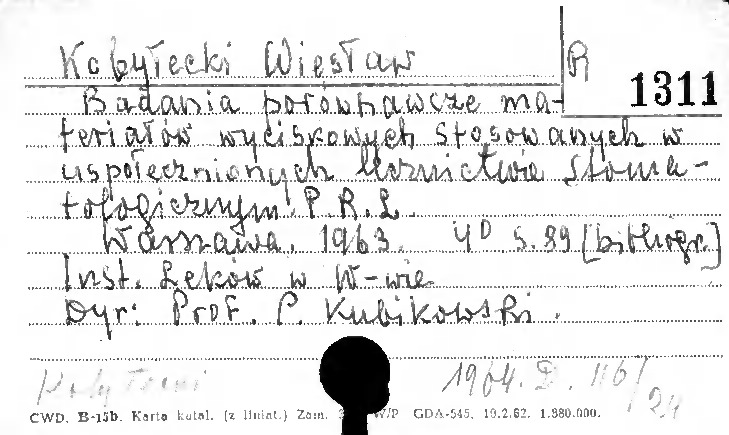 Kobyłecki Wiesław
R 1311
Badania porównawcze ma-
teriałów wyciskowych stosowanych w
uspołecznionych lecznictwie stoma-
tologicznym P.R.L.
Warszawa. 1963. 4D s. 89 [bibliogr.]
Inst. Leków w W-wie
Dyr: Prof. P. Kubikowski.
1964. D. 116/24
CWD. B-15b. Karta katal. (z liniat.) Zam. W/P GDA-545. 19.2.62. 1.880.000.